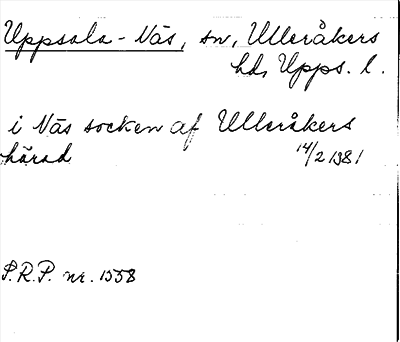 Uppsala-Näs, sn, Ulleråkers
hd, Upps. l.
i Näs socken af Ulleråkers
härad 14/2 1381
P.R.P. nr. 1558